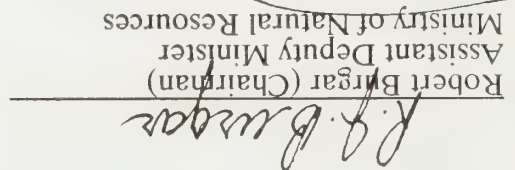 R. J. Burgar
Robert Burgar (Chairman)
Assistant Deputy Minister
Ministry of Natural Resources